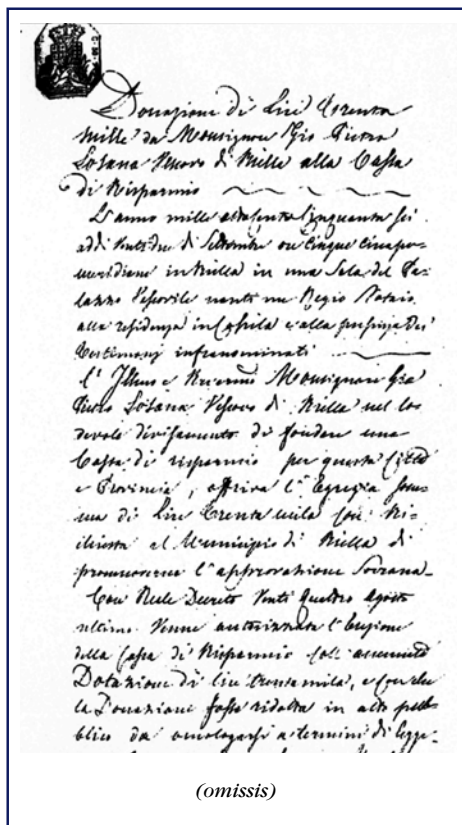 Donazione di Lire Trenta
mille da Monsignor Gio Pietro
Losana Vescovo di Biella alla Cassa
di Risparmio
L'anno mille ottocento cinquanta sei
addì venti due di Settembre ore cinque circa po-
meridiane in Biella in una Sala del Pa-
lazzo Vescovile nanti me Regio Notaio
alla residenza in e alla presenza dei
testimonj infranominati
l' Illmo e Revermo Monsignor Gio
Pietro Losana Vescovo di Biella nel lo-
devole divisamento di fondare una
Cassa di risparmio per questa Città
e Provincia, offriva l'Egregia som-
ma di Lire Trenta mila con Ri-
chiesta al Municipio di Biella di
promuoverne l'approvazione Sovrana.
Con Reale Decreto Venti quattro Agosto
ultimo Venne autorizzata l'Erezione
della Cassa di Risparmio coll'accennata
Dotazione di lire trentamila, e con che
la Donazione fosse ridotta in atto pub-
blico da omologarsi a termini di legge.
(omissis)